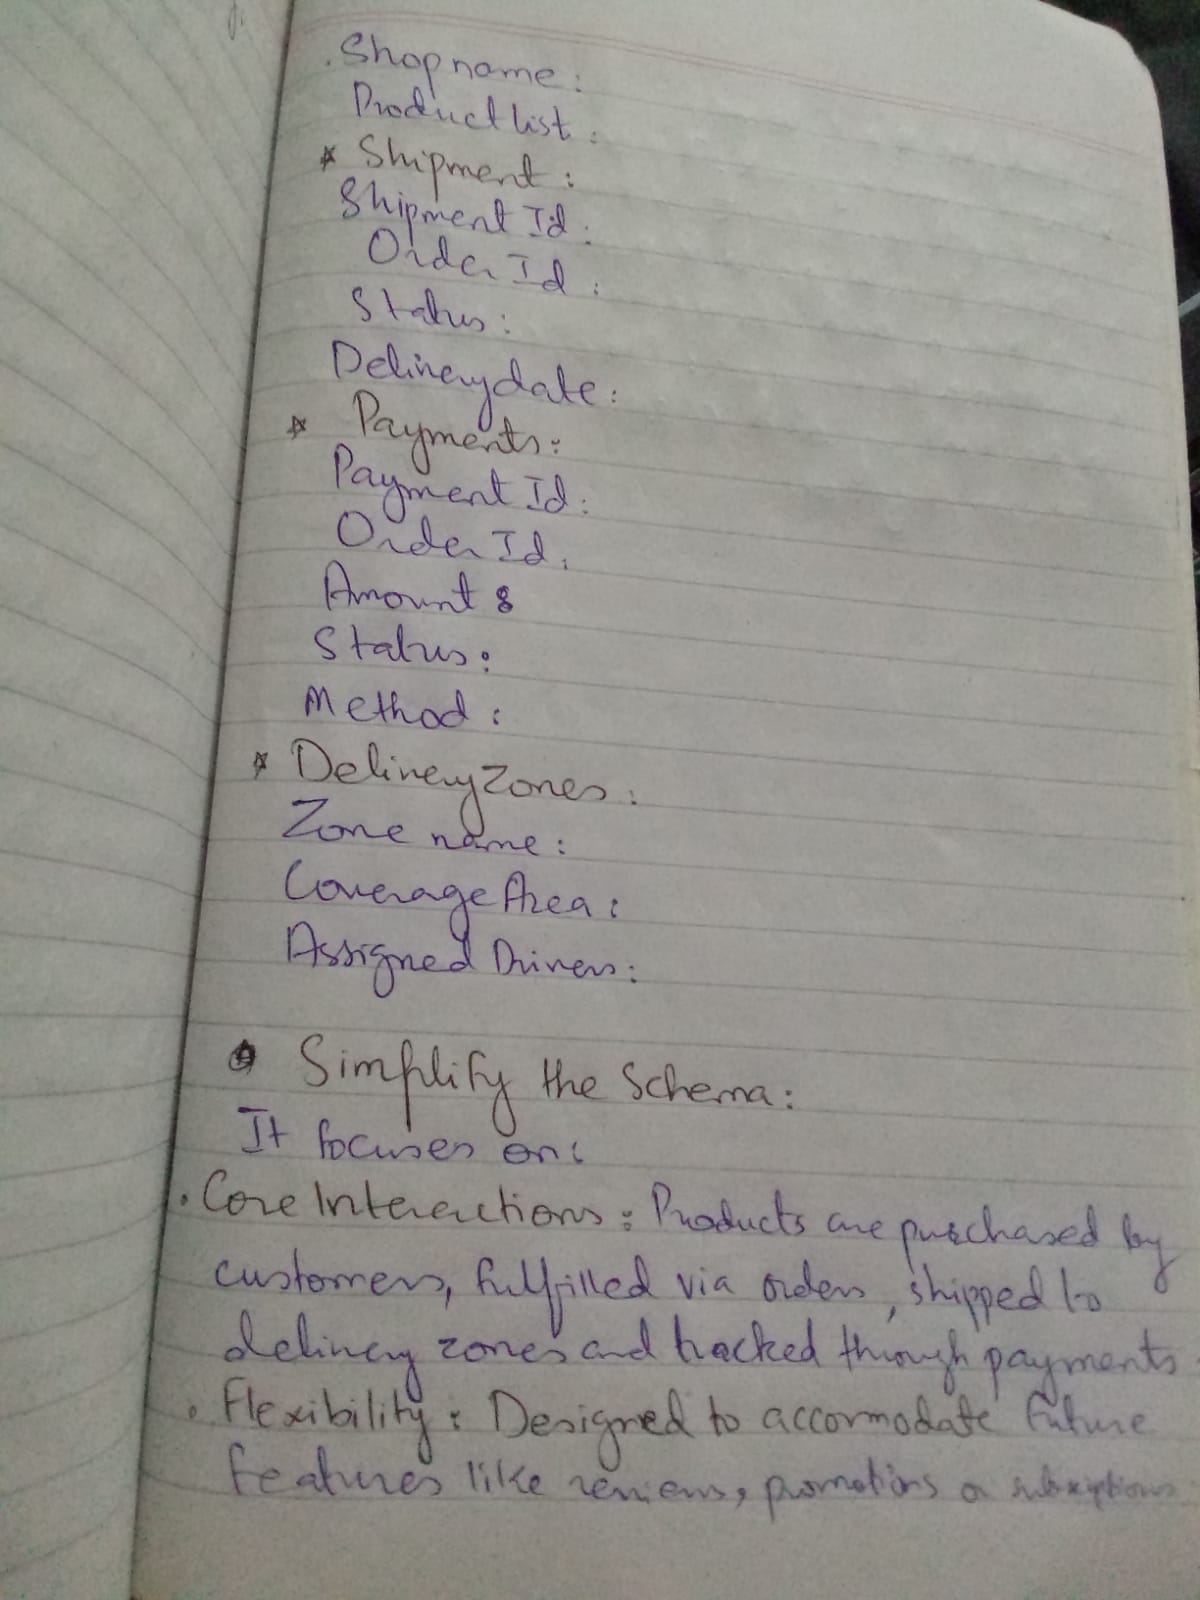 . Shop name :
Product list :
* Shipment :
Shipment Id :
Order Id :
Status :
Delivery date :
* Payments :
Payment Id :
Order Id :
Amount :
Status :
Method :
* Delivery Zones :
Zone name :
Coverage Area :
Assigned Drivers :
Simplify the Schema :
It focuses on :
. Core Interactions : Products are purchased by
customers, fulfilled via orders, shipped to
delivery zones and tracked through payments
. Flexibility : Designed to accormodate future
features like reviews, promotions or subscriptions